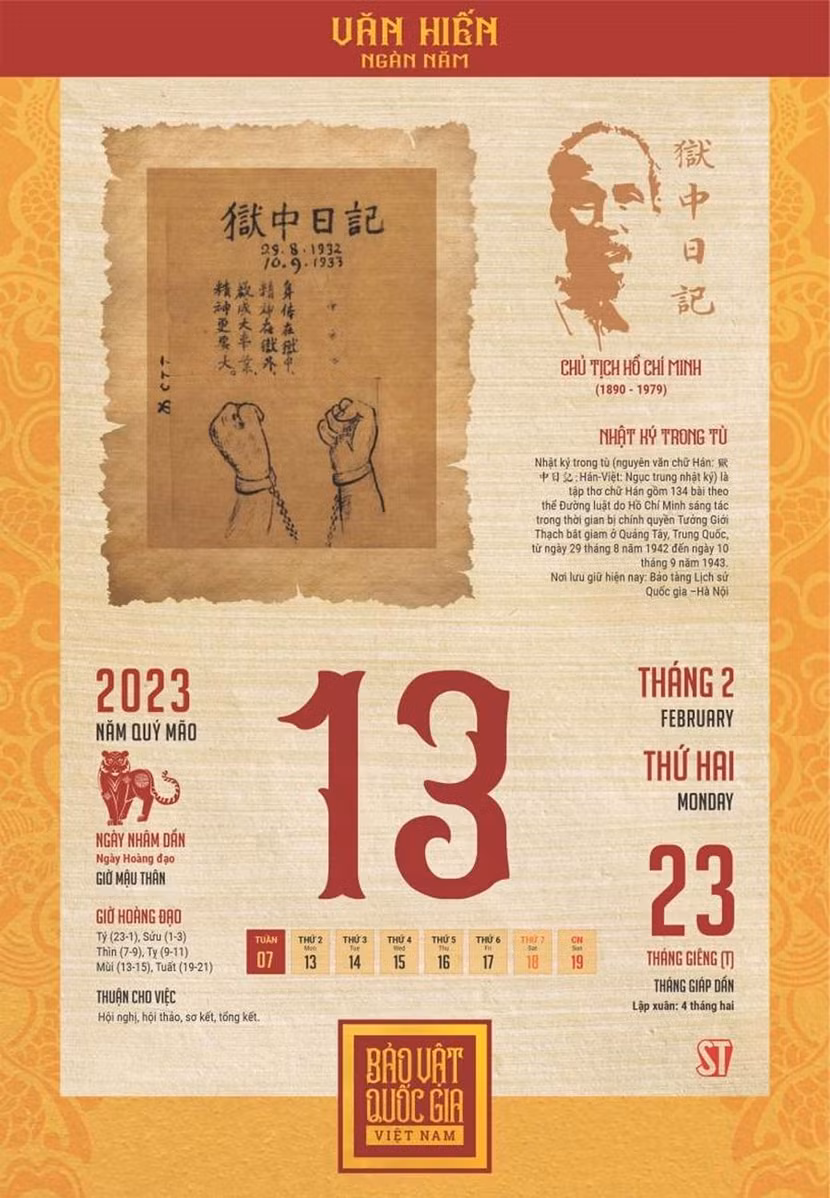 VĂN HIẾN
NGÀN NĂM
獄中日記
29.8.1932
10.9.1933
身体在獄中,
精神在獄外,
欲成大事業,
精神更要大。
獄中日記
CHỦ TỊCH HỒ CHÍ MINH
(1890 - 1979)
NHẬT KÝ TRONG TÙ
Nhật ký trong tù (nguyên văn chữ Hán: 獄
中日记; Hán-Việt: Ngục trung nhật ký) là
tập thơ chữ Hán gồm 134 bài theo
thể Đường luật do Hồ Chí Minh sáng tác
trong thời gian bị chính quyền Tưởng Giới
Thạch bắt giam ở Quảng Tây, Trung Quốc,
từ ngày 29 tháng 8 năm 1942 đến ngày 10
tháng 9 năm 1943.
Nơi lưu giữ hiện nay: Bảo tàng Lịch sử
Quốc gia –Hà Nội
2023
NĂM QUÝ MÃO
NGÀY NHÂM DẦN
Ngày Hoàng đạo
GIỜ MẬU THÂN
GIỜ HOÀNG ĐẠO
Tý (23-1), Sửu (1-3)
Thìn (7-9), Tỵ (9-11)
Mùi (13-15), Tuất (19-21)
THUẬN CHO VIỆC
Hội nghị, hội thảo, sơ kết, tổng kết.
13
TUẦN THỨ 2 THỨ 3 THỨ 4 THỨ 5 THỨ 6 THỨ 7 CN
Mon Tue Wed Thu Fri Sat Sun
07 13 14 15 16 17 18 19
THÁNG 2
FEBRUARY
THỨ HAI
MONDAY
23
THÁNG GIÊNG (T)
THÁNG GIÁP DẦN
Lập xuân: 4 tháng hai
ST
BẢO VẬT
QUỐC GIA
VIỆT NAM